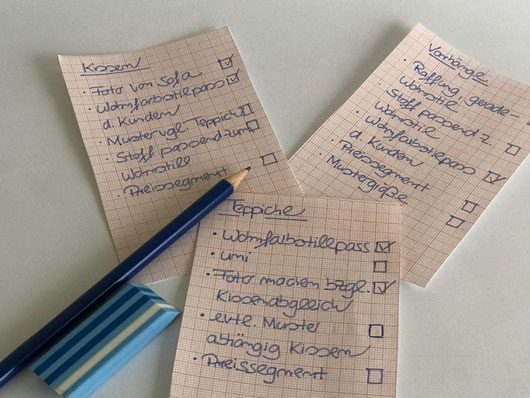 Kissen
· Foto von Sofa
· Wohnfarbstilpass
d. Kunden
· Muster vgl. Teppich
· Stoff passend zum
Wohnstill
· Preissegment
Vorhänge
· Raffung, gerade –
Wohnstil
· Stoff passend z.
Wohnstil
· Wohnfarbstilpass
d. Kunden
· Preissegment
· Mustergröße
Teppiche
· Wohnfarbstillpass
· uni
· Foto machen bzgl.
Kissenabgleich
· evtl. Muster
abhängig Kissen
· Preissegment